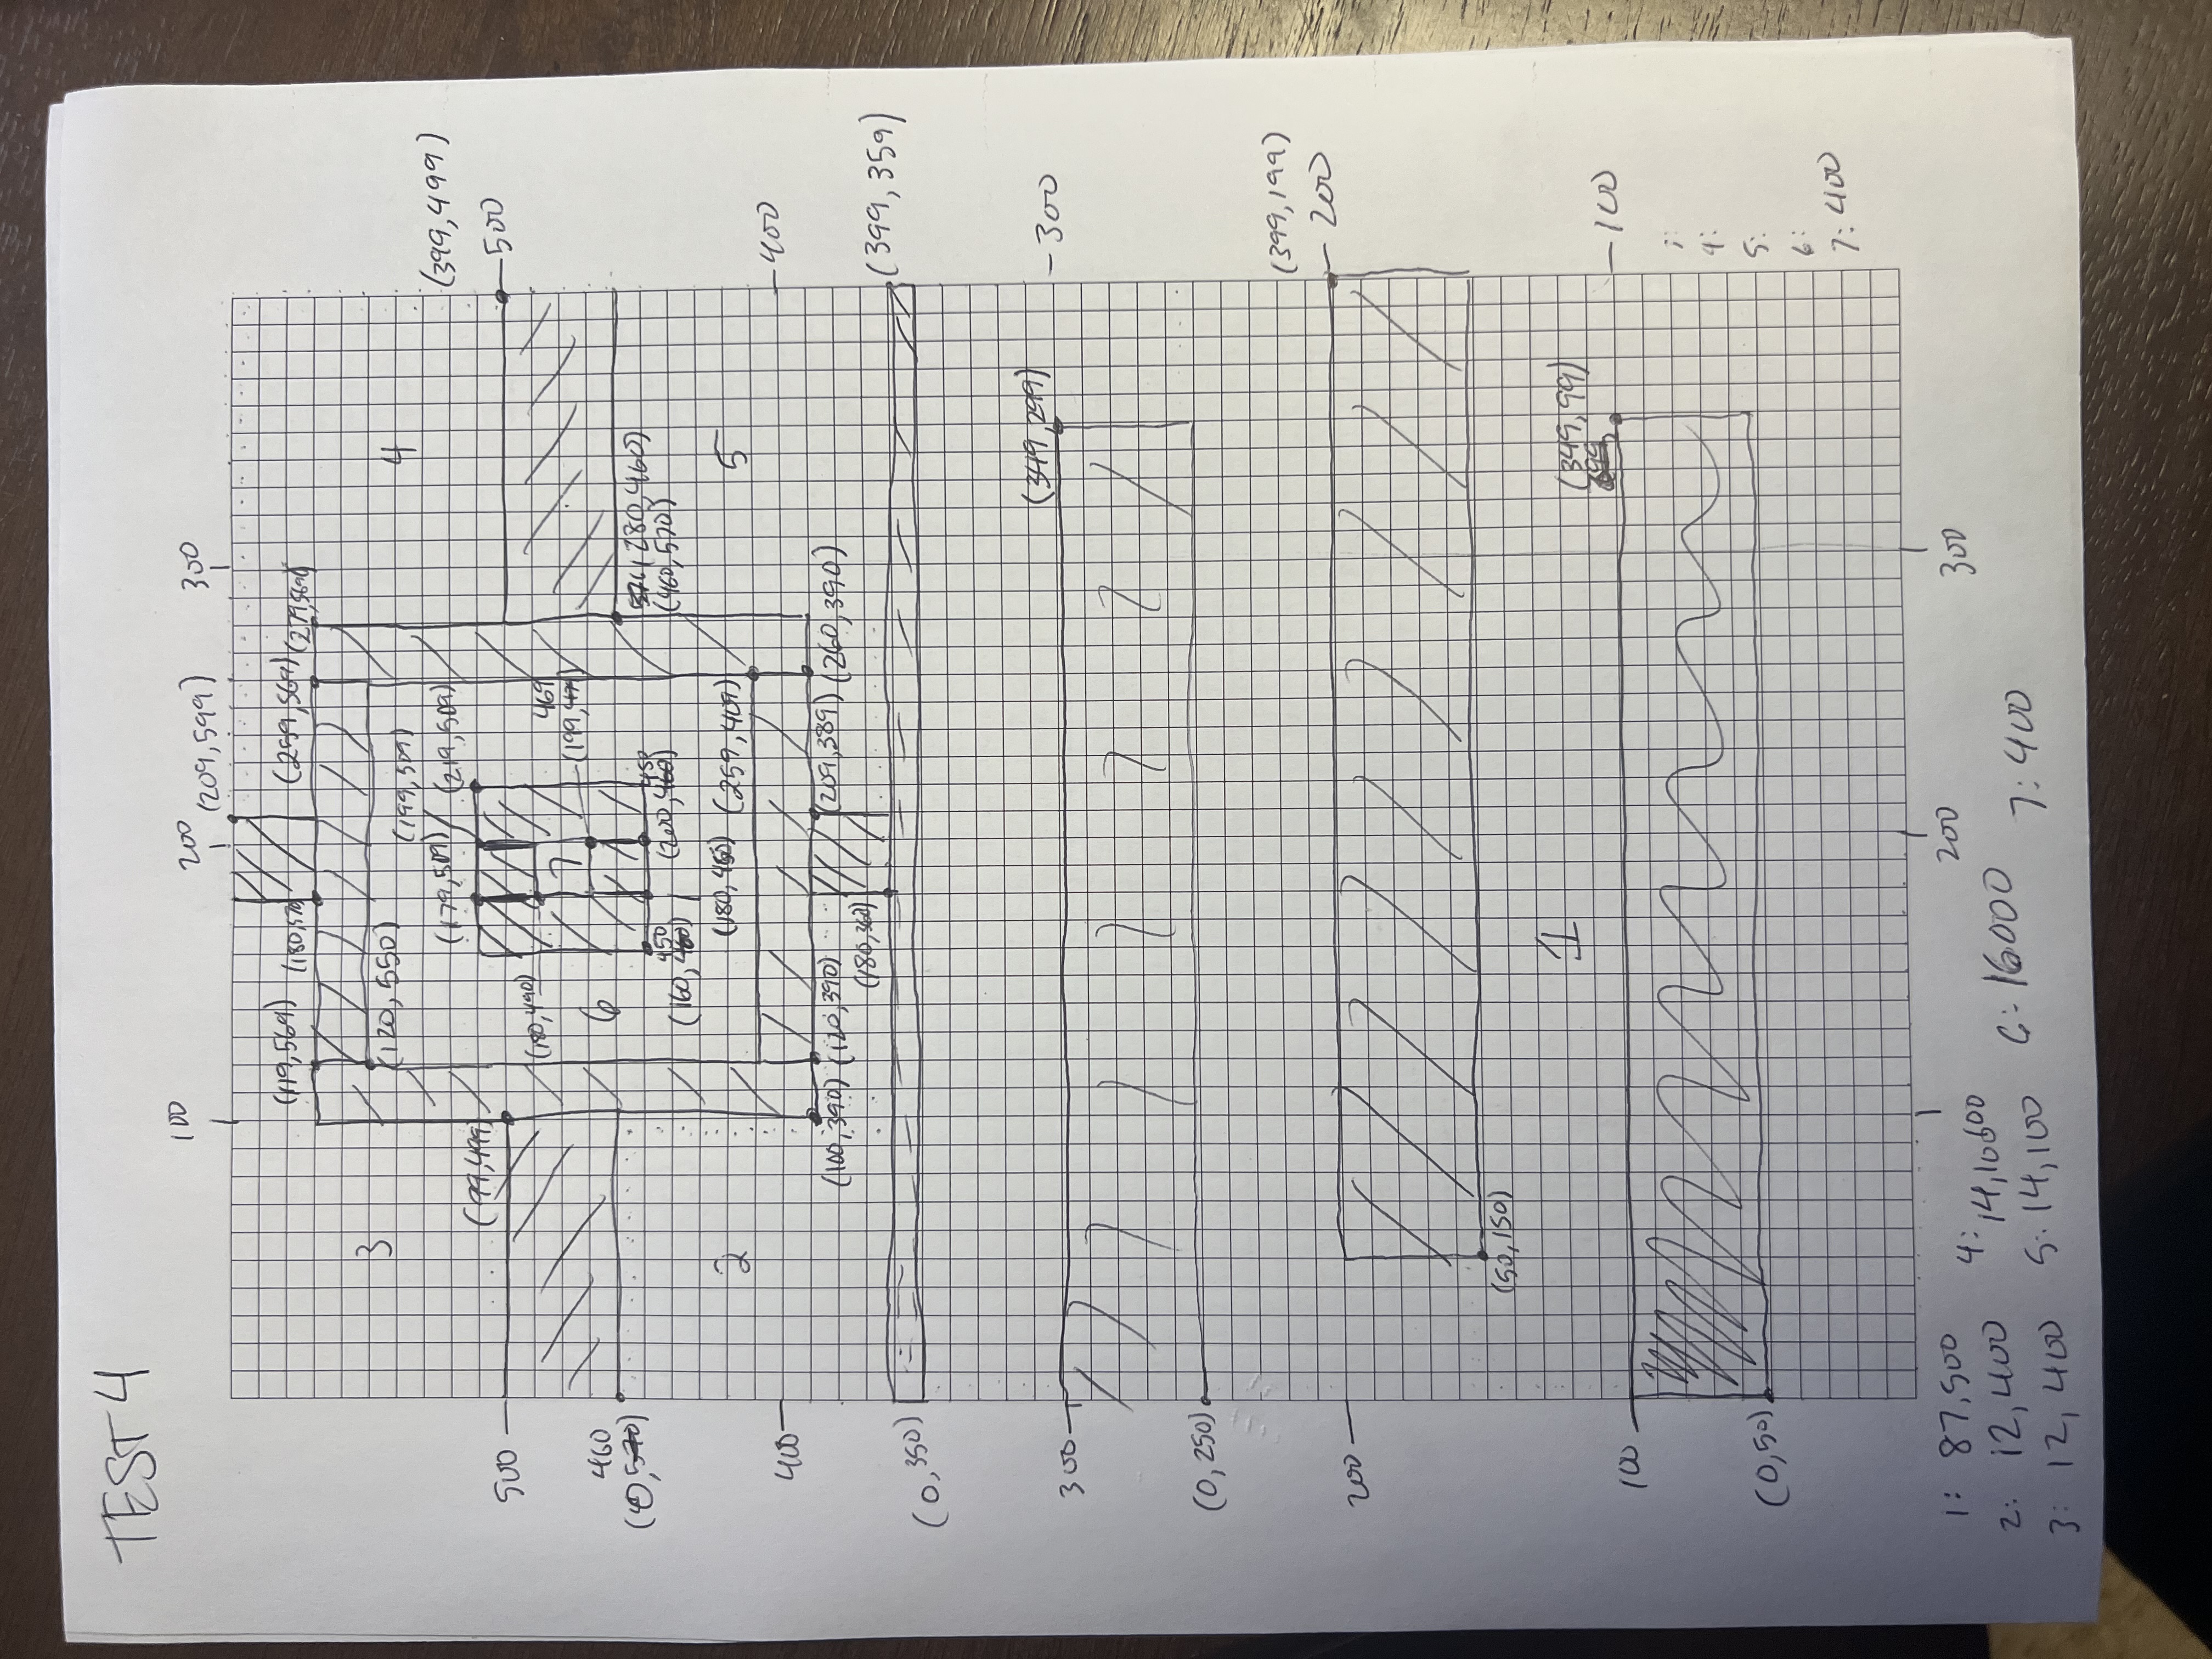 TEST 4
100 200 300
(209,599)
(119,569) (180,570) (259,569) (279,569)
3 4
(120,550)
(199,509)
(179,509) (219,509)
(399,499)
(99,499)
500 500
(180,490)
469
(199,479)
7
6
460
(0,570)
(280,460)
(460,570)
450 450
(160,460) (200,460)
(180,450) (259,409)
2 5
400 400
(100,390) (120,390) (209,389) (260,390)
(180,360)
(399,359)
(0,350)
(349,299)
300 300
(0,250)
(399,199)
200 200
(50,150)
1
(349,99)
100 100
4:
5:
6:
7: 400
(0,50)
200 300
1: 87,500
2: 12,400
3: 12,400
4:
5: 14,100
6: 16000
7: 400